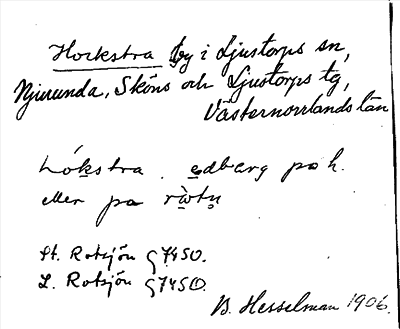 Horkstra by i Ljustorps sn,
Njurunda, Sköns och Ljustorps tg,
Västernorrlands län
hókstra . edbarg pa h.
eller pa ràtu
St. Rotsjön G7450.
L. Rotsjön G7450.
B. Hesselman 1906.